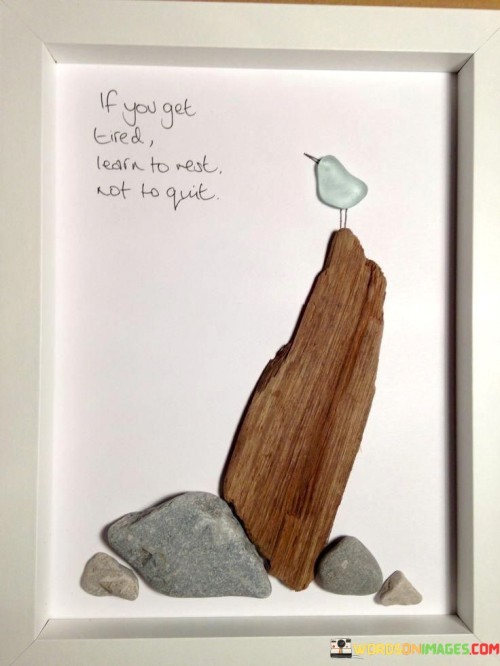 If you get
tired,
learn to rest.
not to quit.
WORDSONIMAGES.COM